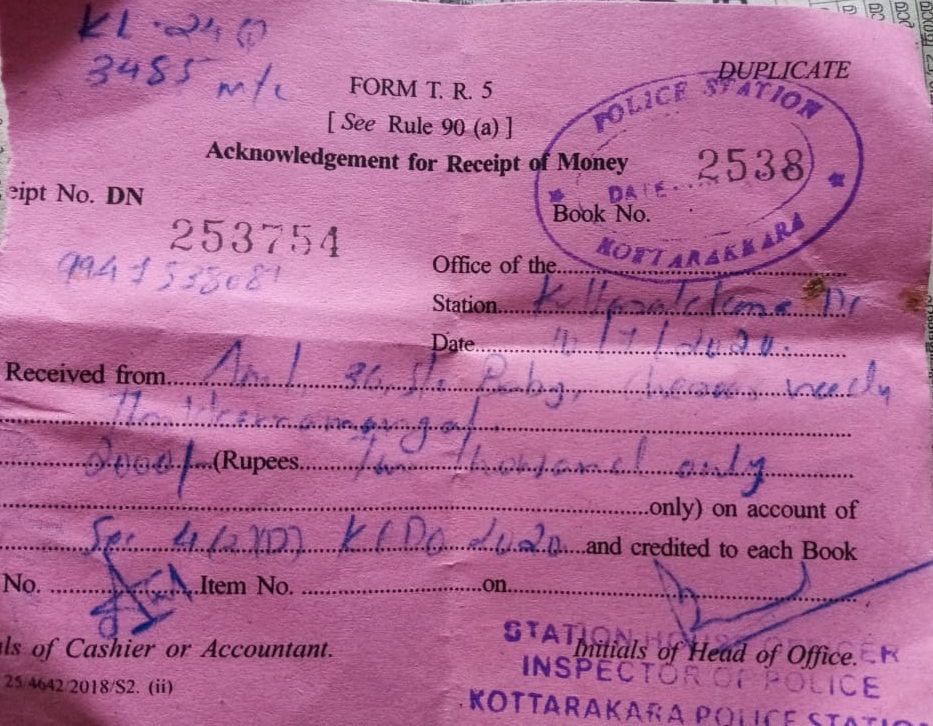 KL-24
3485 m/c
DUPLICATE
FORM T. R. 5
[ See Rule 90 (a) ]
Acknowledgement for Receipt of Money
POLICE STATION
DATE
KOTTARAKKARA
2538
Book No.
eipt No. DN
253754
Office of the
Station
Date /7/2020.
Received from 36, S/o
2000/- (Rupees Two thousand only
only) on account of
Sec 4(2)(D) KEDO 2020 and credited to each Book
No. Item No. on
ls of Cashier or Accountant.
Initials of Head of Office.
STATION HOUSE OFFICER
INSPECTOR OF POLICE
KOTTARAKARA POLICE STATION
25/4642/2018/S2. (ii)